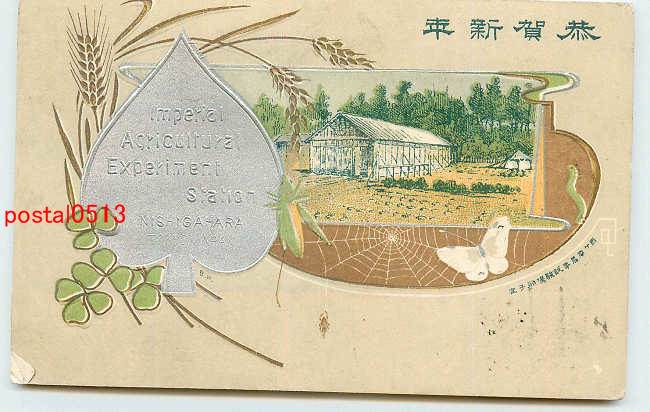 恭賀新年
Imperial
Agricultural
Experiment
Station
NISHIGAHARA
postal0513